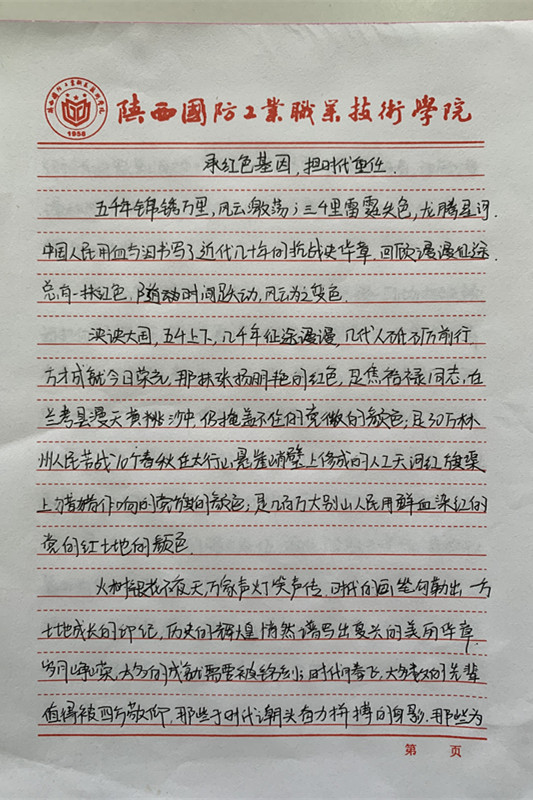 陕西国防工业职业技术学院
陕西國防工業職業技術學院
1958
承红色基因,担时代重任.
五千年锦绣万里,风云激荡;三千里雷霆失色,龙腾星河.
中国人民用血与泪书写了近代几十年的抗战史华章.回顾漫漫征途.
总有一抹红色,随着时间跃动,风云为之变色.
泱泱大国,五千上下,几千年征途漫漫,几代人砥砺前行
方才成就今日荣光,那抹张扬明艳的红色,是焦裕禄同志,在
兰考县漫天黄沙中仍掩盖不住的党徽的颜色;是30万林
州人民苦战10个春秋在太行山悬崖峭壁上修成的人工天河红旗渠
上猎猎作响的党旗的颜色;是几百万大别山人民用鲜血染红的
党的红土地的颜色.
火树银花不夜天,万家声灯笑声传,时代的画笔勾勒出一方
土地成长的印记,历史的辉煌悄然谱写出复兴的美丽华章
岁月峥嵘,太多的成就需要被铭刻;时代腾飞,太多的先辈
值得被四方敬仰,那些于时代潮头奋力拼搏的身影.那些为
第 页